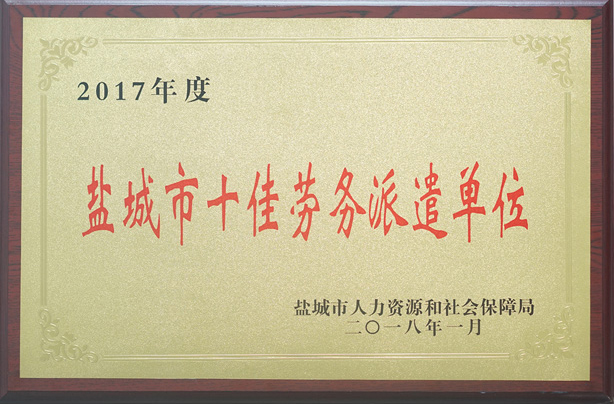 2017年度
盐城市十佳劳务派遣单位
盐城市人力资源和社会保障局
二〇一八年一月